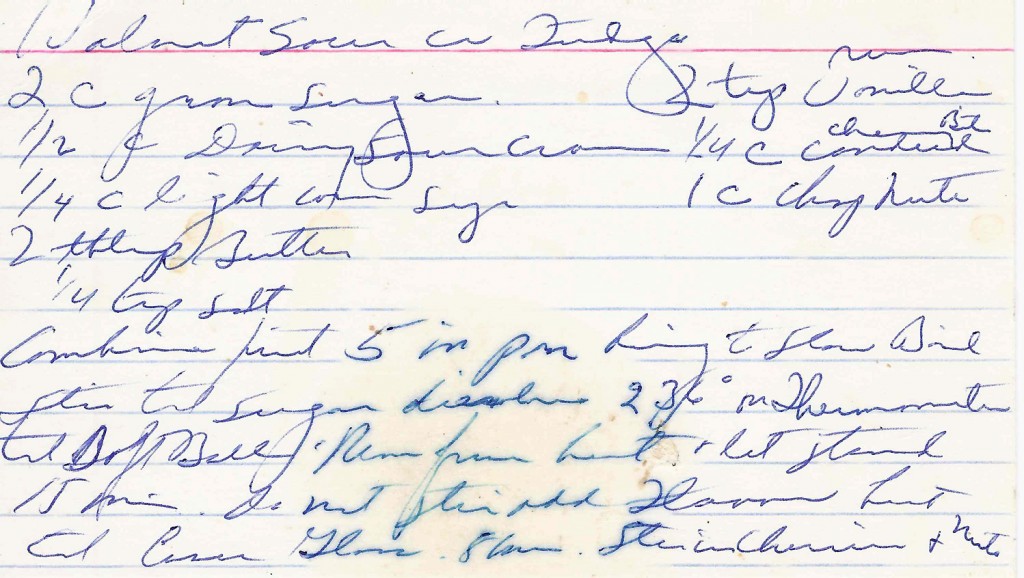 Walnut Sour Cr Fudge
2 C gran Sugar. 2 tsp rum Vanilla
1/2 c Dairy Sour Cream 1/4 C candied cherry
1/4 c light corn Syr 1 C Chop Nuts
2 tblsp Butter
1/4 tsp salt
Combine first 5 in pan bring to slow Boil
Stir til sugar dissolve 236° on Thermometer
til Soft Ball. Rem from heat & let stand
15 min. do not stir add Flavor
til Gloss. Stir in Cherries & Nuts